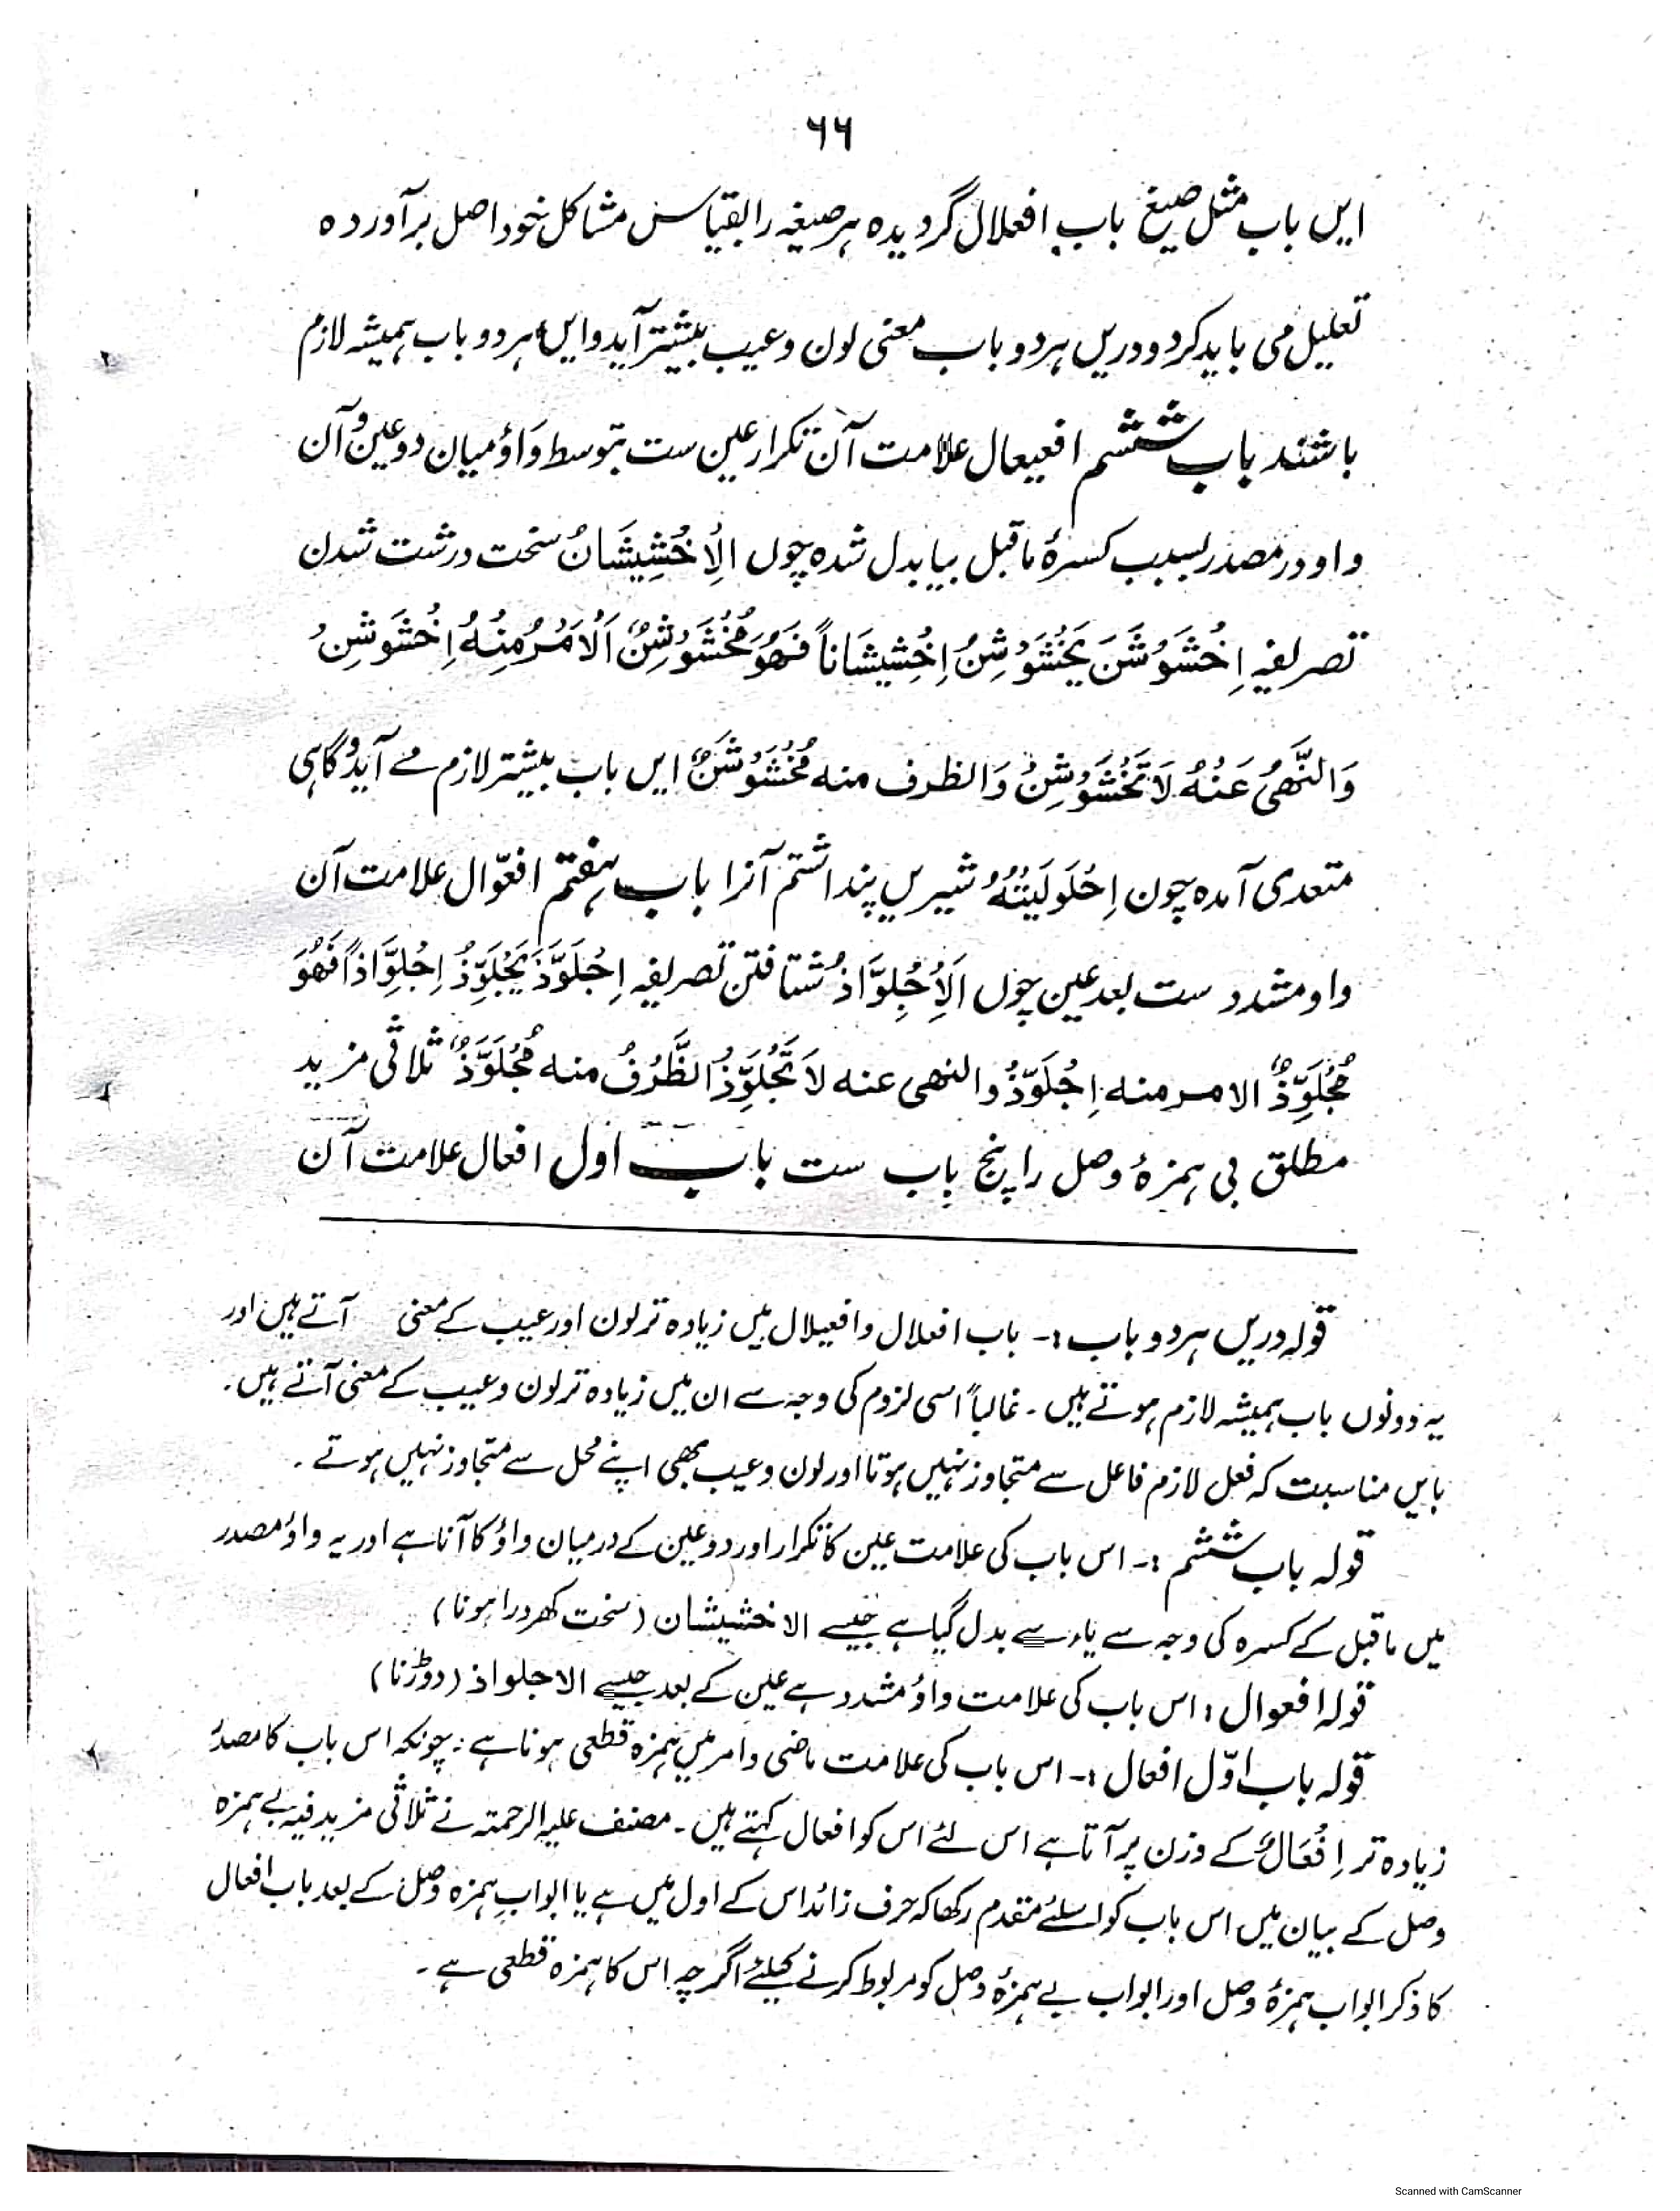 ۶۶
ایں باب مثل صیغ باب افعلال گردیدہ ہر صیغہ را بقیاس مشاکل خود اصل برآوردہ
تعلیل می باید کرد و دریں ہر دو باب معنی لون و عیب بیشتر آید و ایں ہر دو باب ہمیشہ لازم
باشند باب ششم افعیعال علامت آن تکرار عین ست بتوسط وَاوٴ میان دو عین و آن
واو در مصدر بسبب کسرۂ ماقبل بیا بدل شدہ چوں اَلْاِخْشِیْشَانُ سخت درشت شدن
تصریفہ اِخْشَوْشَنَ یَخْشَوْشِنُ اِخْشِیْشَاناً فَہُوَ مُخْشَوْشِنٌ اَلْاَمْرُ مِنْہُ اِخْشَوْشِنْ
وَالنَّہْیُ عَنْہُ لَا تَخْشَوْشِنْ وَالظرف منہ مُخْشَوْشَنٌ ایں باب بیشتر لازم مے آید و گاہی
متعدی آمدہ چون اِحْلَوْلَیْتُہٗ شیریں پنداشتم آنرا باب ہفتم افعوّال علامت آن
واو مشدد ست بعد عین چوں اَلْاِجْلِوَّاذُ شتافتن تصریفہ اِجْلَوَّذَ یَجْلَوِّذُ اِجْلِوَّاذاً فَہُوَ
مُجْلَوِّذٌ الامر منہ اِجْلَوِّذْ والنہی عنہ لَا تَجْلَوِّذْ الظَّرْفُ منہ مُجْلَوَّذٌ ثلاثی مزید
مطلق بی ہمزۂ وصل را پنج باب ست باب اول افعال علامت آن
قولہ دریں ہر دو باب :۔ باب افعلال و افعیلال میں زیادہ تر لون اور عیب کے معنی آتے ہیں اور
یہ دونوں باب ہمیشہ لازم ہوتے ہیں ۔ غالباً اسی لزوم کی وجہ سے ان میں زیادہ تر لون و عیب کے معنی آتے ہیں ۔
بایں مناسبت کہ فعل لازم فاعل سے متجاوز نہیں ہوتا اور لون و عیب بھی اپنے محل سے متجاوز نہیں ہوتے ۔
قولہ باب ششم :۔ اس باب کی علامت عین کا تکرار اور دو عین کے درمیان واؤ کا آنا ہے اور یہ واؤ مصدر
میں ماقبل کے کسرہ کی وجہ سے یاء سے بدل گیا ہے جیسے الاخشیشان (سخت کھردرا ہونا)
قولہ افعوال : اس باب کی علامت واؤ مشدد ہے عین کے بعد جیسے الاجلواذ (دوڑنا)
قولہ باب اوّل افعال :۔ اس باب کی علامت ماضی و امر میں ہمزہ قطعی ہونا ہے : چونکہ اس باب کا مصدر
زیادہ تر اِفْعَالٌ کے وزن پر آتا ہے اس لئے اس کو افعال کہتے ہیں ۔ مصنف علیہ الرحمتہ نے ثلاثی مزید فیہ بے ہمزہ
وصل کے بیان میں اس باب کو اسلئے مقدم رکھا کہ حرف زائد اس کے اول میں ہے یا ابوابِ ہمزہ وصل کے بعد باب افعال
کا ذکر ابواب ہمزۂ وصل اور ابواب بے ہمزۂ وصل کو مربوط کرنے کیلئے اگرچہ اس کا ہمزہ قطعی ہے ۔
Scanned with CamScanner